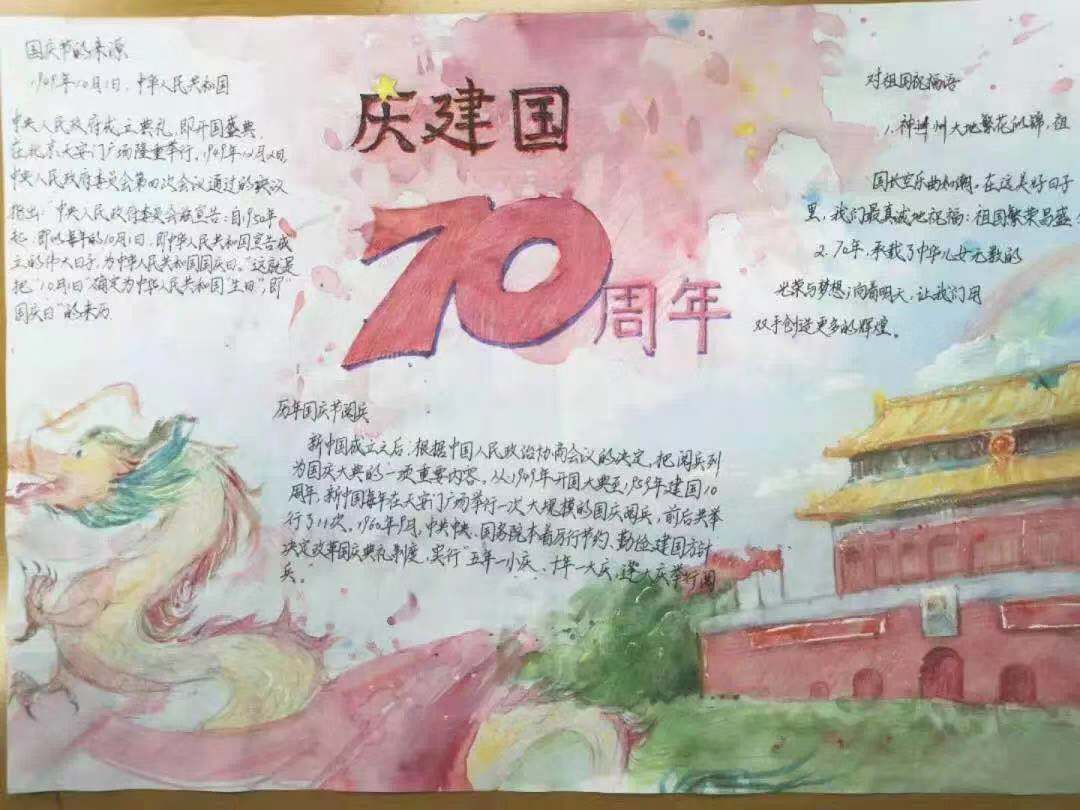 国庆节的来源
1949年10月1日，中华人民共和国
中央人民政府成立典礼，即开国盛典，
在北京天安门广场隆重举行，1949年12月2日，
中央人民政府委员会第四次会议通过的决议
指出："中央人民政府委员会兹宣告：自1950年
起，即以每年的10月1日，即中华人民共和国宣告成
立的伟大日子，为中华人民共和国国庆日。"这就是
把"10月1日"确定为中华人民共和国"生日"，即"
国庆日"的来历.
庆建国
70
周年
对祖国祝福语
1. 神州大地繁花似锦，祖
国长空乐曲如潮。在这美好日子
里，我们最真诚地祝福：祖国繁荣昌盛.
2. 70年，承载了中华儿女无数的
光荣与梦想；向着明天，让我们用
双手创造更多的辉煌。
历年国庆节阅兵
新中国成立之后：根据中国人民政治协商会议的决定，把阅兵列
为国庆大典的一项重要内容。从1949年开国大典至1959年建国10
周年，新中国每年在天安门广场举行一次大规模的国庆阅兵，前后共举
行了11次。1960年9月，中央中央、国务院本着厉行节约、勤俭建国方针
决定改革国庆典礼制度，实行"五年一小庆、十年一大庆，逢大庆举行阅
兵。